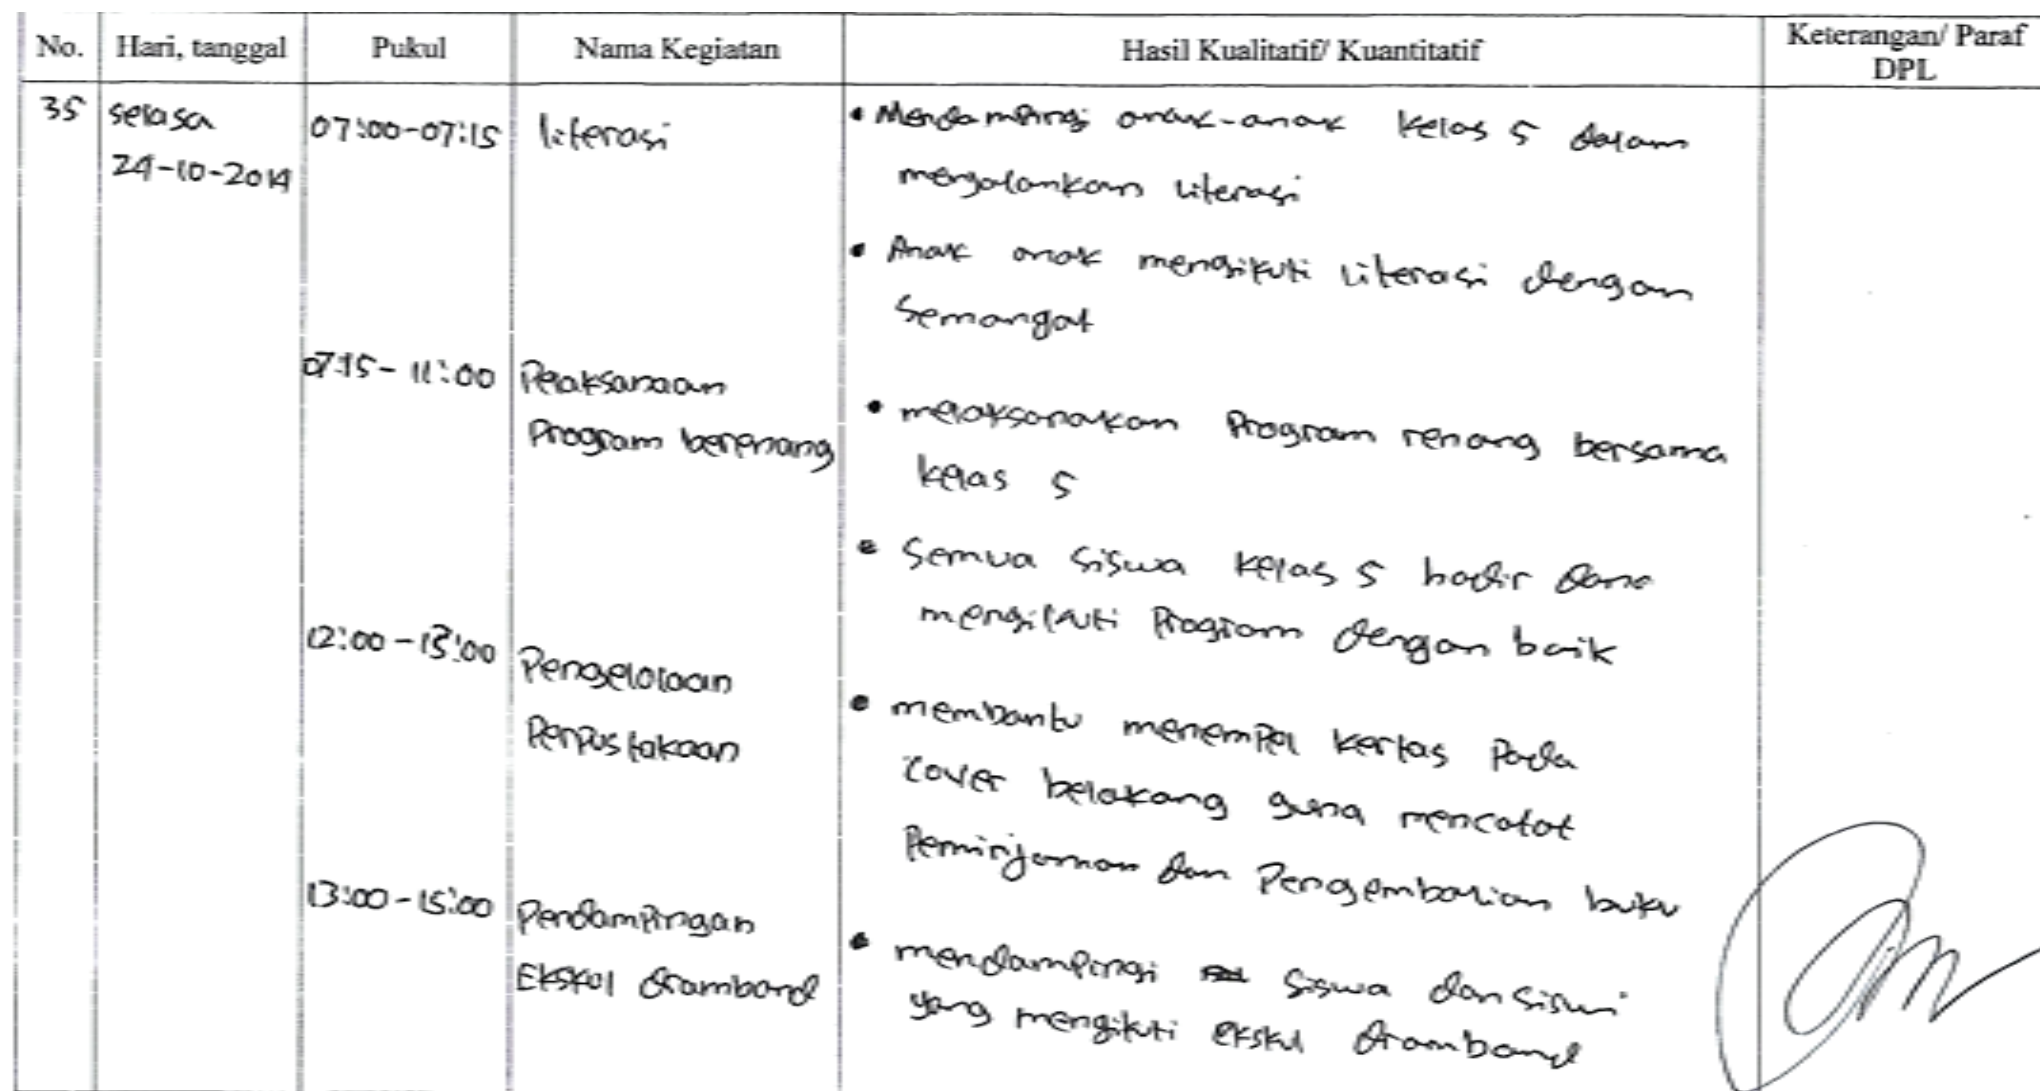 No. Hari, tanggal Pukul Nama Kegiatan Hasil Kualitatif/ Kuantitatif Keterangan/ Paraf
DPL
35 selasa 07:00-07:15 literasi • Mendampingi anak-anak kelas 5 dalam
24-10-2014 mengalankan literasi
• Anak anak mengikuti literasi dengan
semangat
07:15 - 11:00 Pelaksanaan
Program berenang
• melaksanakan Program renang bersama
kelas 5
• Semua siswa kelas 5 hadir dana
mengikuti Program dengan baik
12:00 - 13:00 Pengelolaan
Perpustakaan
• membantu menempel kertas Pada
cover belakang guna mencatat
Peminjaman dan Pengembalian buku
13:00 - 15:00 Pendampingan
Ekskul dramband
• mendampingi siswa dan siswi
yang mengikuti ekskul dramband